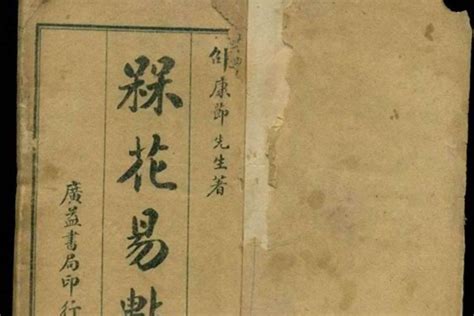 邵康節先生著
槑花易
廣益書局印行